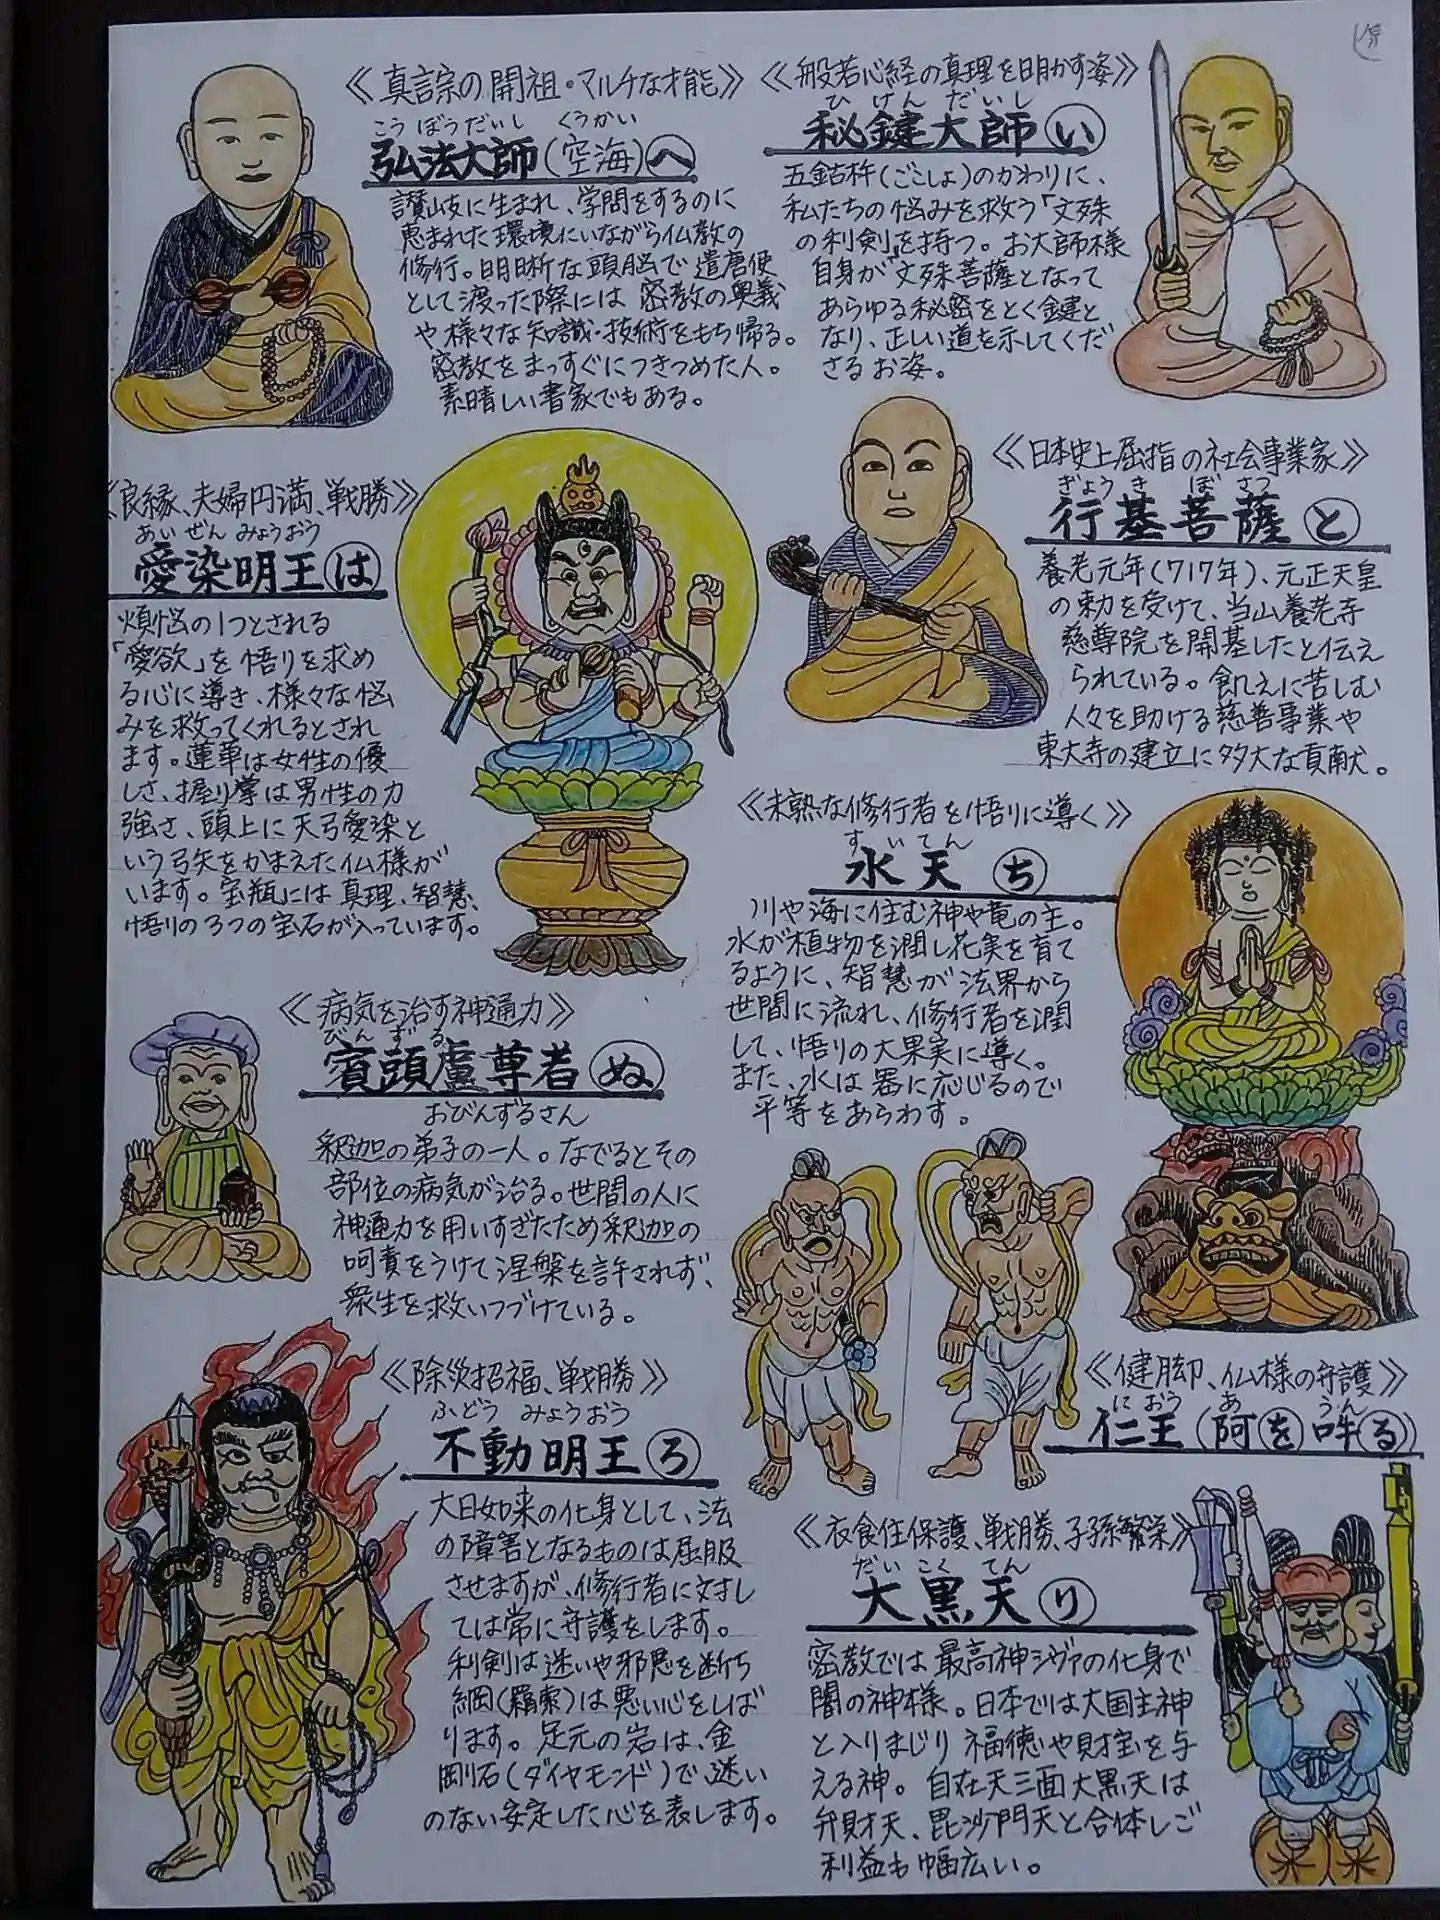 《真言宗の開祖・マルチな才能》
こうぼうだいし くうかい
弘法大師(空海)へ
讃岐に生まれ、学問をするのに
恵まれた環境にいながら仏教の
修行。明晰な頭脳で遣唐使
として渡った際には密教の奥義
や様々な知識・技術をもち帰る。
密教をまっすぐにつきつめた人。
素晴しい書家でもある。
《般若心経の真理を明かす姿》
ひけんだいし
秘鍵大師い
五鈷杵(ごこしょ)のかわりに、
私たちの悩みを救う「文殊
の利剣」を持つ。お大師様
自身が文殊菩薩となって
あらゆる秘密をとく鍵と
なり、正しい道を示してくだ
さるお姿。
《良縁、夫婦円満、戦勝》
あいぜんみょうおう
愛染明王は
煩悩の1つとされる
「愛欲」を悟りを求め
る心に導き、様々な悩
みを救ってくれるとされ
ます。蓮華は女性の優
しさ、握り掌は男性の力
強さ、頭上に天弓愛染と
いう弓矢をかまえた仏様が
います。宝瓶には真理、智慧、
悟りの3つの宝石が入っています。
《日本史上屈指の社会事業家》
ぎょうきぼさつ
行基菩薩と
養老元年(717年)、元正天皇
の勅を受けて、当山養老寺
慈尊院を開基したと伝え
られている。飢えに苦しむ
人々を助ける慈善事業や
東大寺の建立に多大な貢献。
《未熟な修行者を悟りに導く》
すいてん
水天ち
川や海に住む神や竜の主。
水が植物を潤し花実を育て
るように、智慧が法界から
世間に流れ、修行者を潤
して、悟りの大果実に導く。
また、水は器に応じるので
平等をあらわす。
《病気を治す神通力》
びんずる
賓頭盧尊者ぬ
おびんずるさん
釈迦の弟子の一人。なでるとその
部位の病気が治る。世間の人に
神通力を用いすぎたため釈迦の
呵責をうけて涅槃を許されず、
衆生を救いつづけている。
《健脚、仏様の守護》
におう あ うん
仁王(阿を 吽る)
《除災招福、戦勝》
ふどうみょうおう
不動明王ろ
大日如来の化身として、法
の障害となるものは屈服
させますが、修行者に対し
ては常に守護をします。
利剣は迷いや邪悪を断ち
綱(羂索)は悪い心をしば
ります。足元の岩は、金
剛石(ダイヤモンド)で、迷い
のない安定した心を表します。
《衣食住保護、戦勝、子孫繁栄》
だいこくてん
大黒天り
密教では最高神シヴァの化身で
闇の神様。日本では大国主神
と入りまじり福徳や財宝を与
える神。自在天三面大黒天は
弁財天、毘沙門天と合体しご
利益も幅広い。